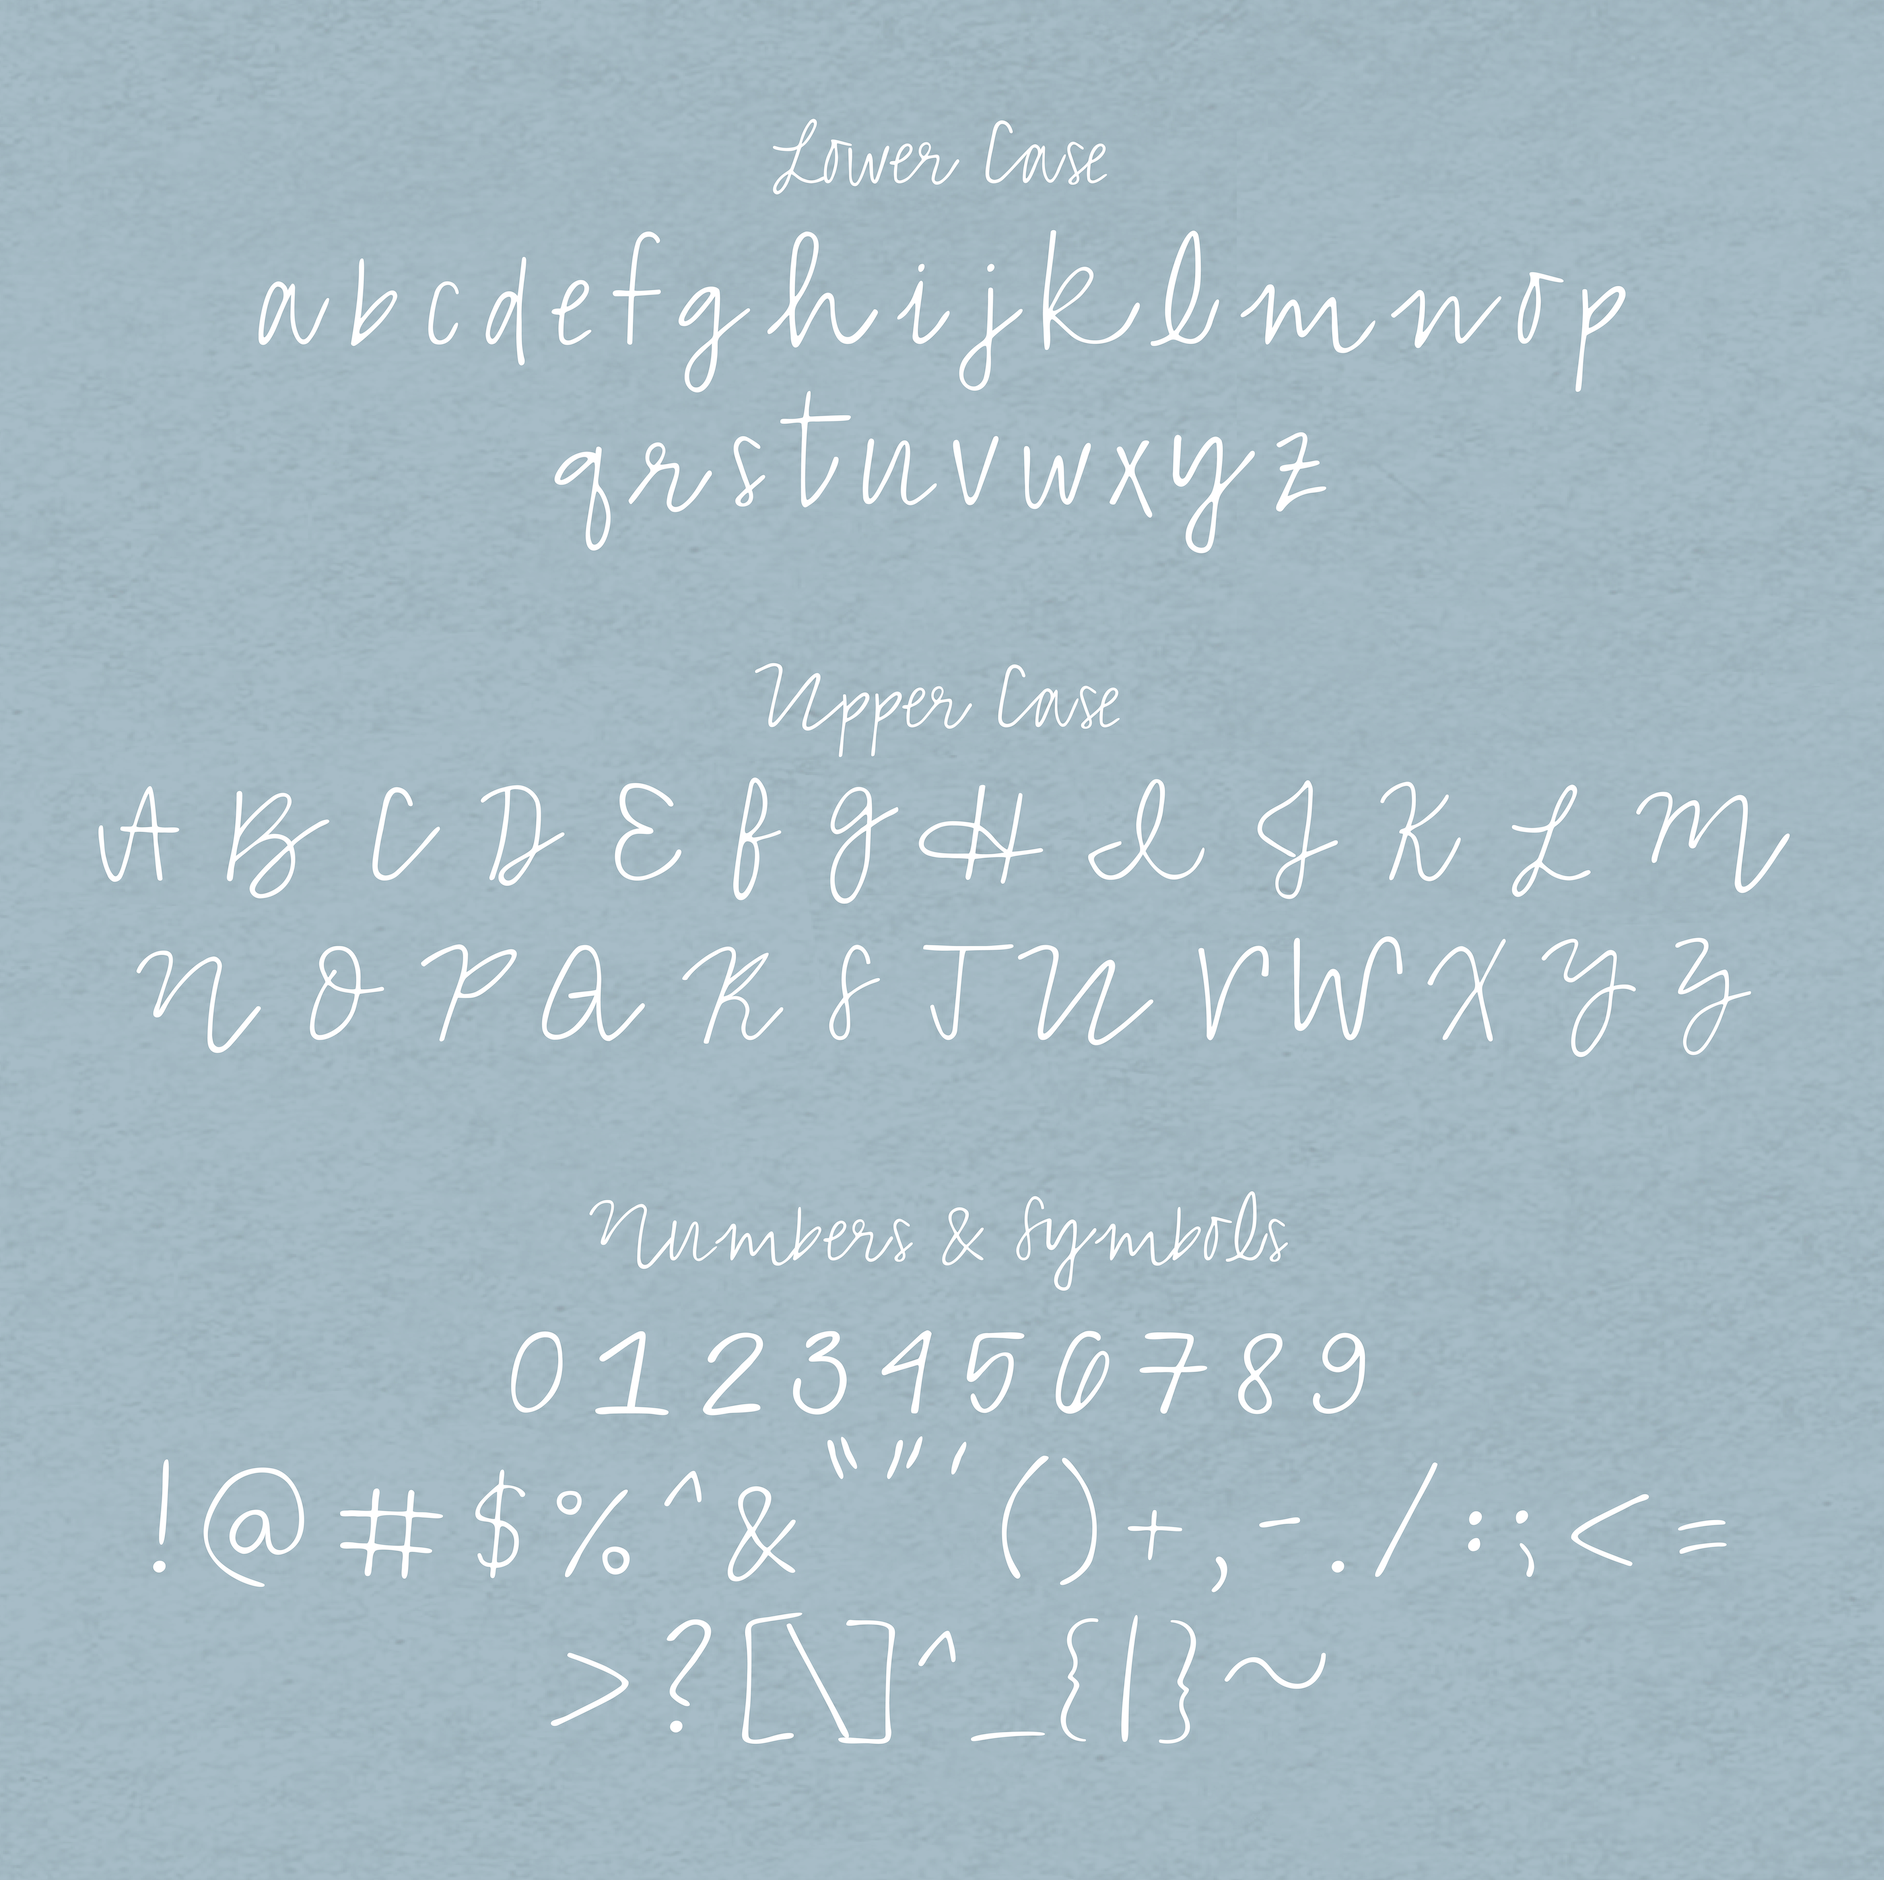 Lower Case
a b c d e f g h i j k l m n o p
q r s t u v w x y z
Upper Case
A B C D E F G H I J K L M
N O P Q R S T U V W X Y Z
Numbers & Symbols
0 1 2 3 4 5 6 7 8 9
! @ # $ % ^ & “ ” ' ( ) + , - . / : ; < =
> ? [ \ ] ^ _ { | } ~